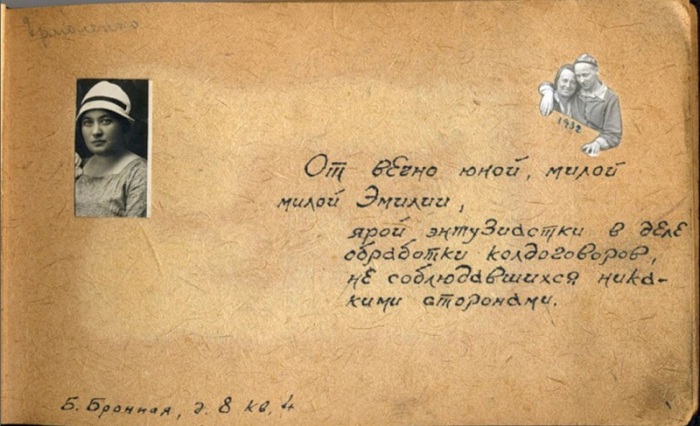 Ярмоленко
1932
От вечно юной, милой
милой Эмилии,
ярой энтузиастки в деле
обработки колдоговоров,
не соблюдавшихся ника-
кими сторонами.
Б. Бронная, д. 8 кв. 4